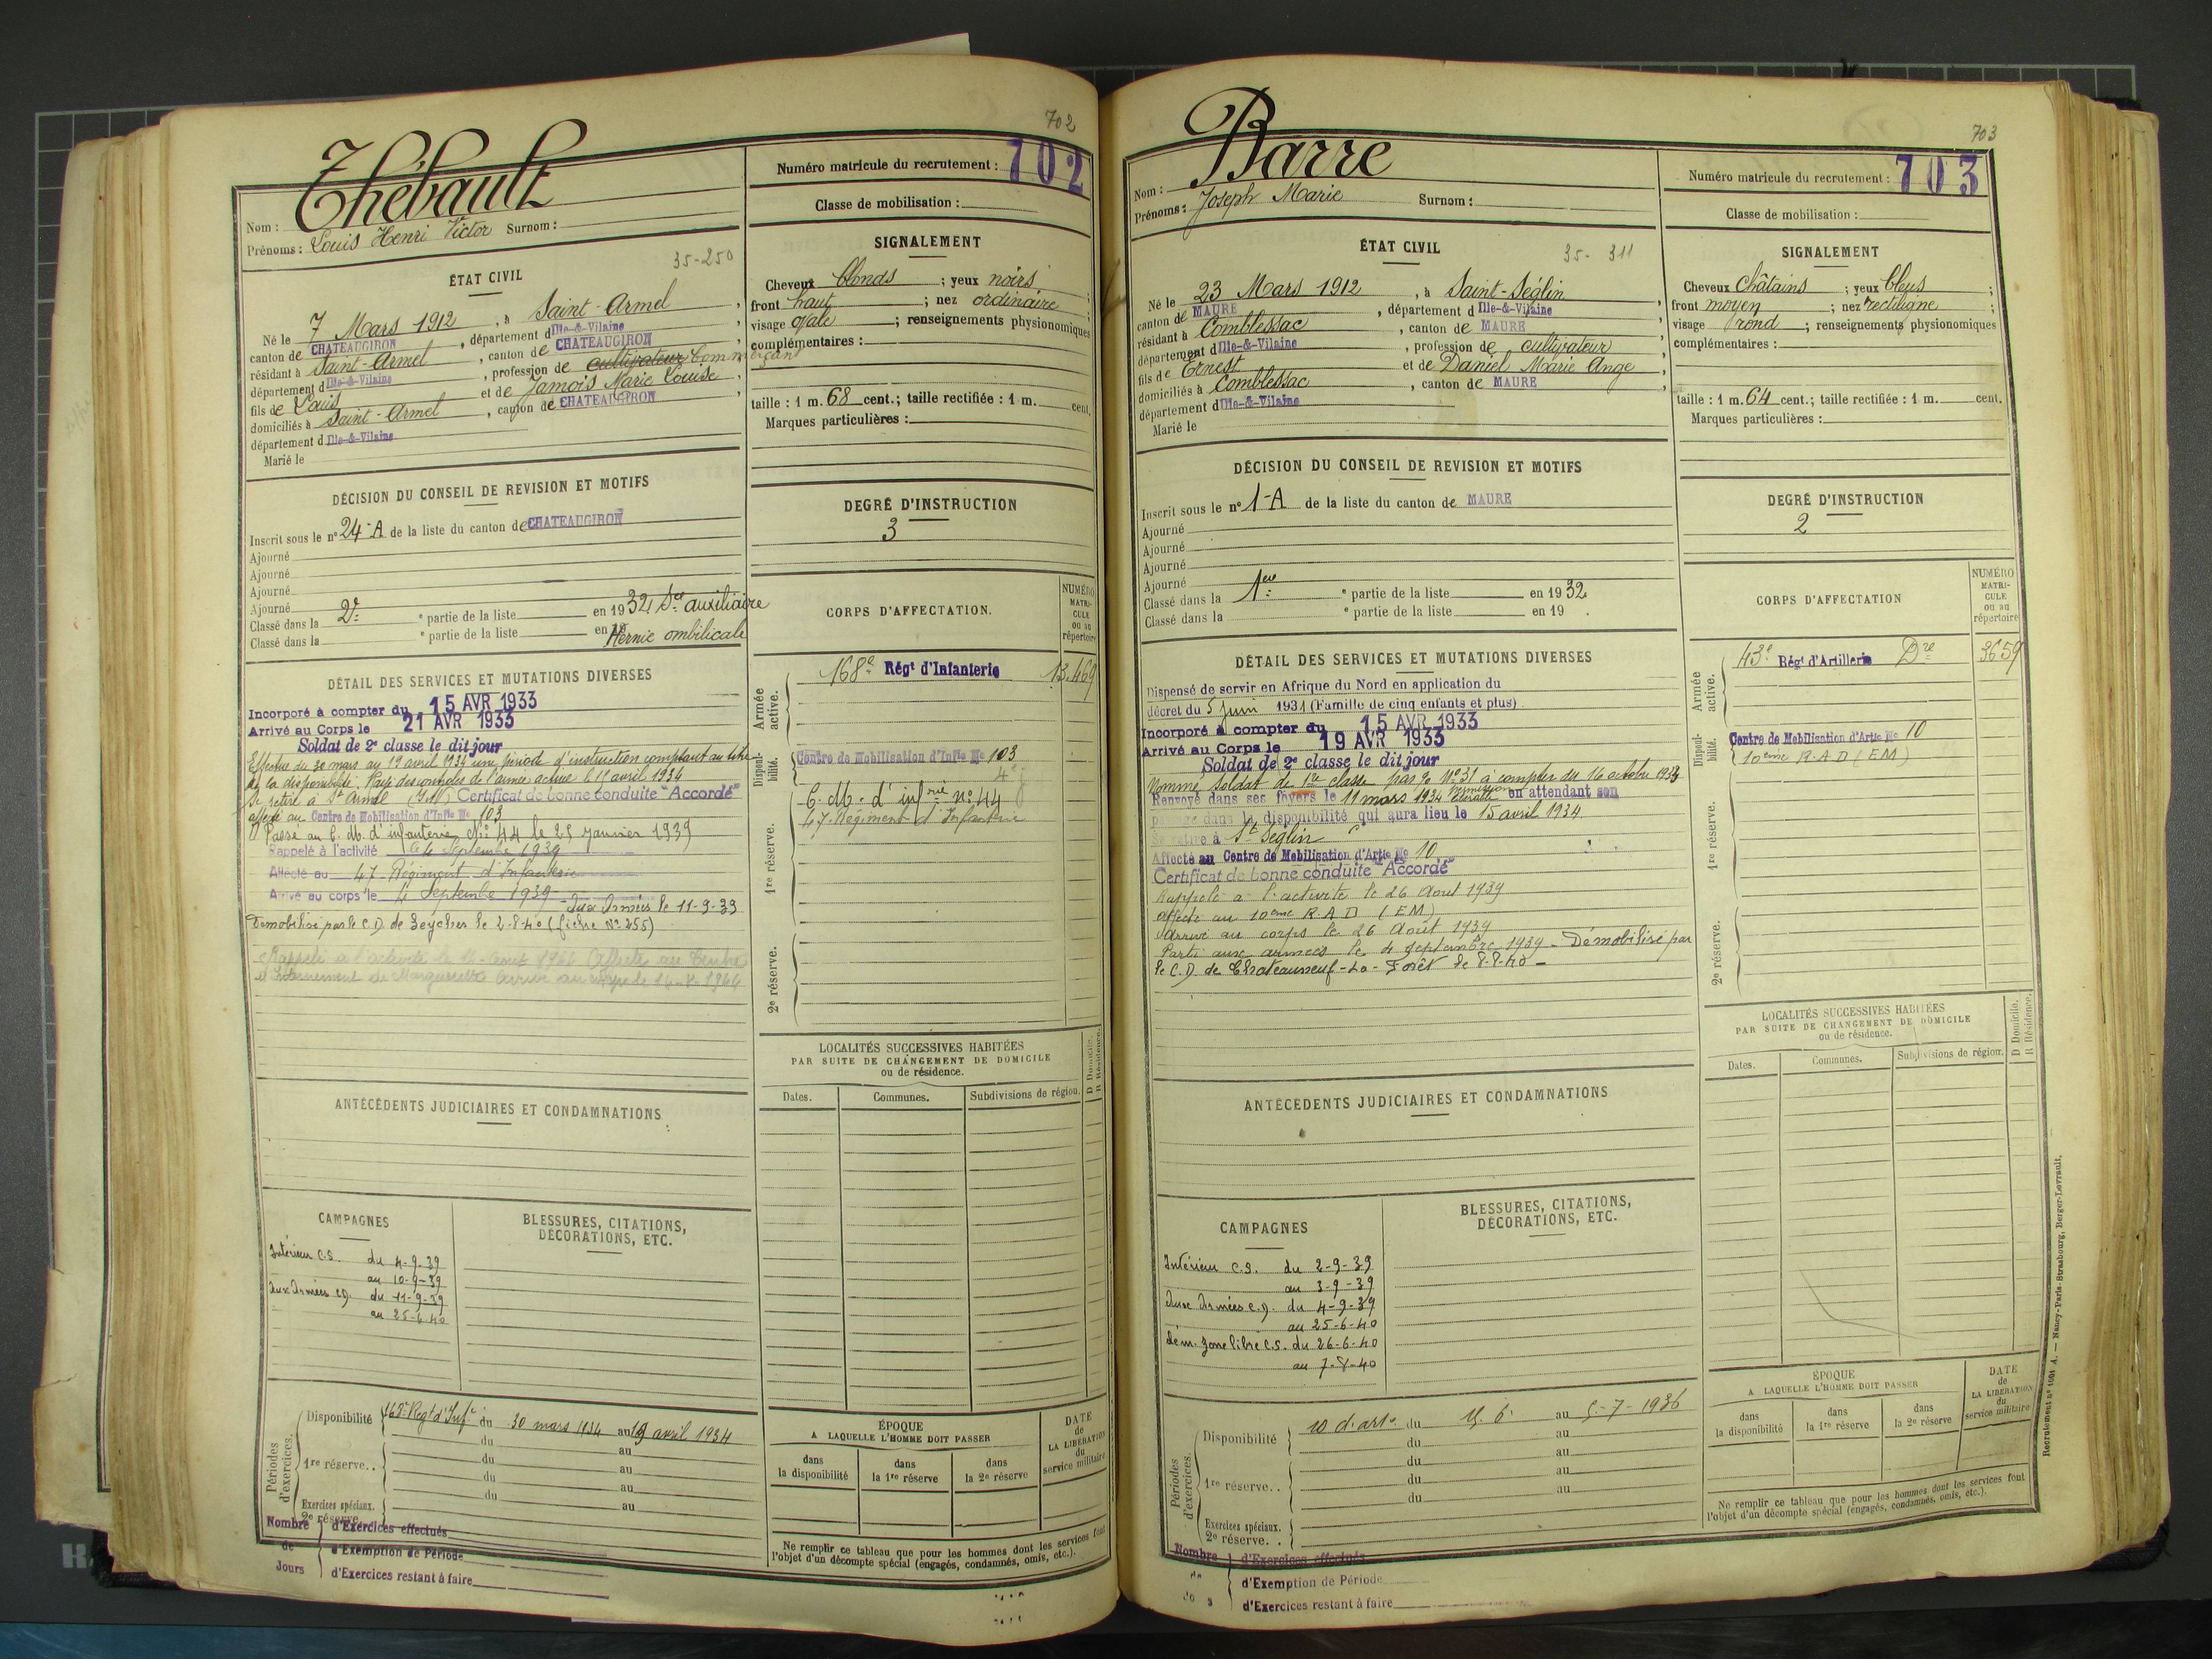 702
Thébault
Nom :
Prénoms : Louis Henri Victor Surnom :
Numéro matricule du recrutement : 702
Classe de mobilisation :
ÉTAT CIVIL
35-250
Né le 7 Mars 1912, à Saint-Armel,
canton de CHATEAUGIRON, département d Ille-&-Vilaine,
résidant à Saint-Armel, canton de CHATEAUGIRON,
département d Ille-&-Vilaine, profession de cultivateur Commerçant
fils de Louis et de Jamois Marie Louise,
domiciliés à Saint-Armel, canton de CHATEAUGIRON,
département d Ille-&-Vilaine
Marié le
SIGNALEMENT
Cheveux blonds ; yeux noirs ;
front haut ; nez ordinaire ;
visage ovale ; renseignements physionomiques
complémentaires :
taille : 1 m. 68 cent.; taille rectifiée : 1 m. cent.
Marques particulières :
DÉCISION DU CONSEIL DE REVISION ET MOTIFS
Inscrit sous le nº 24-A de la liste du canton de CHATEAUGIRON
Ajourné
Ajourné
Ajourné
Ajourné
Classé dans la 2e e partie de la liste en 1932 Sce auxiliaire
Classé dans la e partie de la liste en 19
Hernie ombilicale
DEGRÉ D'INSTRUCTION
3
DÉTAIL DES SERVICES ET MUTATIONS DIVERSES
Incorporé à compter du 15 AVR 1933
Arrivé au Corps le 21 AVR 1933
Soldat de 2e classe le dit jour
Effectue du 30 mars au 19 avril 1934 une période d'instruction comptant au titre
de la disponibilité. Rayé des contrôles de l'armée active le 11 avril 1934
Se retire à St Armel (I.V) Certificat de bonne conduite "Accordé"
affecté au Centre de Mobilisation d'Infie No 103
Passé au C. M. d'infanterie No 44 le 25 janvier 1939
Rappelé à l'activité le 4 Septembre 1939
Affecté au 47 Régiment d'Infanterie
Arrivé au corps le 4 Septembre 1939 - Aux Armées le 11-9-39
Démobilisé par le C.D. de Seyches le 2-8-40 (fiche No 255)
CORPS D'AFFECTATION.
NUMÉRO MATRI-CULE ou au répertoire
Armée active.
168e Régt d'Infanterie 13.469
Disponi-bilité.
Centre de Mobilisation d'Infie No 103
C. M. d'infrie No 44
47 Régiment d'Infanterie
1re réserve.
2e réserve.
LOCALITÉS SUCCESSIVES HABITÉES
PAR SUITE DE CHANGEMENT DE DOMICILE
ou de résidence.
Dates. Communes. Subdivisions de région. D Domicile. R Résidence.
ANTÉCÉDENTS JUDICIAIRES ET CONDAMNATIONS
CAMPAGNES
Intérieur C.S. du 4-9-39
au 10-9-39
Aux Armées C.D. du 11-9-39
au 25-6-40
BLESSURES, CITATIONS,
DÉCORATIONS, ETC.
Périodes d'exercices.
Disponibilité du 30 mars 1934 au 19 avril 1934
du au
1re réserve.. du au
du au
du au
Exercices spéciaux.
2e réserve..
Nombre de Jours
d'Exercices effectués
d'Exemption de Période
d'Exercices restant à faire
ÉPOQUE
A LAQUELLE L'HOMME DOIT PASSER
dans la disponibilité
dans la 1re réserve
dans la 2e réserve
DATE de LA LIBÉRATION du service militaire
Ne remplir ce tableau que pour les hommes dont les services font
l'objet d'un décompte spécial (engagés, condamnés, omis, etc.).
703
Barre
Nom :
Prénoms : Joseph Marie Surnom :
Numéro matricule du recrutement : 703
Classe de mobilisation :
ÉTAT CIVIL
35-311
Né le 23 Mars 1912, à Saint-Séglin,
canton de MAURE, département d Ille-&-Vilaine,
résidant à Comblessac, canton de MAURE
département d Ille-&-Vilaine, profession de cultivateur,
fils de Ernest et de Daniel Marie Ange,
domiciliés à Comblessac, canton de MAURE,
département d Ille-&-Vilaine
Marié le
SIGNALEMENT
Cheveux châtains ; yeux bleus ;
front moyen ; nez rectiligne ;
visage rond ; renseignements physionomiques
complémentaires :
taille : 1 m. 64 cent.; taille rectifiée : 1 m. cent.
Marques particulières :
DÉCISION DU CONSEIL DE REVISION ET MOTIFS
Inscrit sous le nº 1-A de la liste du canton de MAURE
Ajourné
Ajourné
Ajourné
Ajourné
Classé dans la 1ere e partie de la liste en 1932
Classé dans la e partie de la liste en 19 .
DEGRÉ D'INSTRUCTION
2
DÉTAIL DES SERVICES ET MUTATIONS DIVERSES
Dispensé de servir en Afrique du Nord en application du
décret du 5 juin 1931 (Famille de cinq enfants et plus)
Incorporé à compter du 15 AVR 1933
Arrivé au Corps le 19 AVR 1933
Soldat de 2e classe le dit jour
Nommé soldat de 1re classe par No 31 à compter du 16 octobre 1933
Renvoyé dans ses foyers le 11 mars 1934 en attendant son
passage dans la disponibilité qui aura lieu le 15 avril 1934
Se retire à St Séglin
Affecté au Centre de Mobilisation d'Artie No 10
Certificat de bonne conduite "Accordé"
Rappelé à l'activité le 26 Aout 1939
affecté au 10eme R.A.D (EM)
Arrivé au corps le 26 Aout 1939
Parti aux armées le 4 septembre 1939 - Démobilisé par
le C.D. de Chateauneuf-la-Forêt le 8-8-40 -
CORPS D'AFFECTATION
NUMÉRO MATRI-CULE ou au répertoire
Armée active.
43e Régt d'Artillerie Dre 3659
Disponi-bilité.
Centre de Mobilisation d'Artie No 10
10eme R.A.D (EM)
1re réserve.
2e réserve.
LOCALITÉS SUCCESSIVES HABITÉES
PAR SUITE DE CHANGEMENT DE DOMICILE
ou de résidence.
Dates. Communes. Subdivisions de région. D Domicile. R Résidence.
ANTÉCÉDENTS JUDICIAIRES ET CONDAMNATIONS
CAMPAGNES
Intérieur C.S. du 2-9-39
au 3-9-39
Aux Armées C.D. du 4-9-39
au 25-6-40
dém. zone libre C.S. du 26-6-40
au 7-8-40
BLESSURES, CITATIONS,
DÉCORATIONS, ETC.
Périodes d'exercices.
Disponibilité 10 d'artie du 15.6. au 5-7-1936
du au
du au
1re réserve.. du au
du au
Exercices spéciaux.
2e réserve..
Nombre
d'Exercices effectués
d'Exemption de Période
d'Exercices restant à faire
ÉPOQUE
A LAQUELLE L'HOMME DOIT PASSER
dans la disponibilité
dans la 1re réserve
dans la 2e réserve
DATE de LA LIBÉRATION du service militaire
Ne remplir ce tableau que pour les hommes dont les services font
l'objet d'un décompte spécial (engagés, condamnés, omis, etc.).
Recrutement nº 1091 A. — Nancy-Paris-Strasbourg, Berger-Levrault.